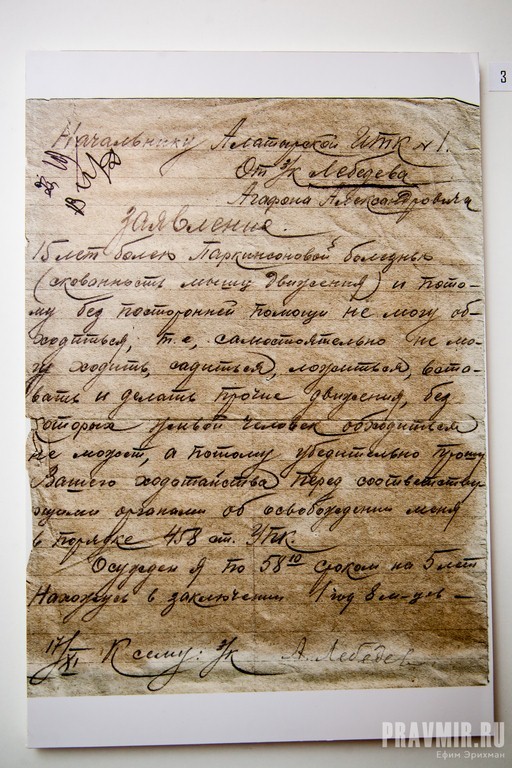 3
Начальнику Алатырской ИТК N 1.
От з/к Лебедева
Агафона Александровича
Заявление.
15 лет болею Паркинсоновой болезнью
(скованность мышц движения) и пото-
му без посторонней помощи не могу об-
ходиться, т.е. самостоятельно не мо-
гу ходить, садиться, ложиться, вста-
вать и делать прочие движения, без
которых живой человек обходиться
не может, а потому убедительно прошу
Вашего ходотайства перед соответству
ющими органами об освобождении меня
в порядке 458 ст. УПК.
Осужден я по 58¹⁰ сроком на 5 лет
Нахожусь в заключении 1 год 8 м-цев –
17/XI К сему: з/к А. Лебедев
PRAVMIR.RU
Ефим Эрихман